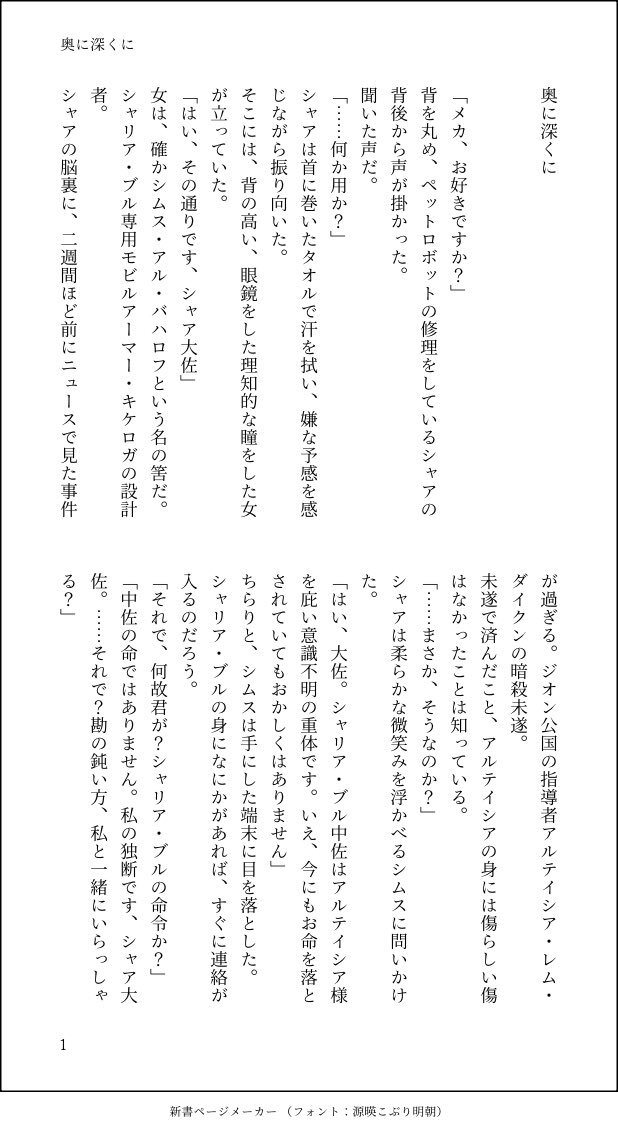 奥に深くに
奥に深くに
「メカ、お好きですか？」
背を丸め、ペットロボットの修理をしているシャアの
背後から声が掛かった。
聞いた声だ。
「……何か用か？」
シャアは首に巻いたタオルで汗を拭い、嫌な予感を感
じながら振り向いた。
そこには、背の高い、眼鏡をした理知的な瞳をした女
が立っていた。
「はい、その通りです、シャア大佐」
女は、確かシムス・アル・バハロフという名の筈だ。
シャリア・ブル専用モビルアーマー・キケロガの設計
者。
シャアの脳裏に、二週間ほど前にニュースで見た事件
が過ぎる。ジオン公国の指導者アルテイシア・レム・
ダイクンの暗殺未遂。
未遂で済んだこと、アルテイシアの身には傷らしい傷
はなかったことは知っている。
「……まさか、そうなのか？」
シャアは柔らかな微笑みを浮かべるシムスに問いかけ
た。
「はい、大佐。シャリア・ブル中佐はアルテイシア様
を庇い意識不明の重体です。いえ、今にもお命を落と
されていてもおかしくはありません」
ちらりと、シムスは手にした端末に目を落とした。
シャリア・ブルの身になにかがあれば、すぐに連絡が
入るのだろう。
「それで、何故君が？シャリア・ブルの命令か？」
「中佐の命ではありません。私の独断です、シャア大
佐。……それで？勘の鈍い方、私と一緒にいらっしゃ
る？」
1
新書ページメーカー（フォント：源暎こぶり明朝）